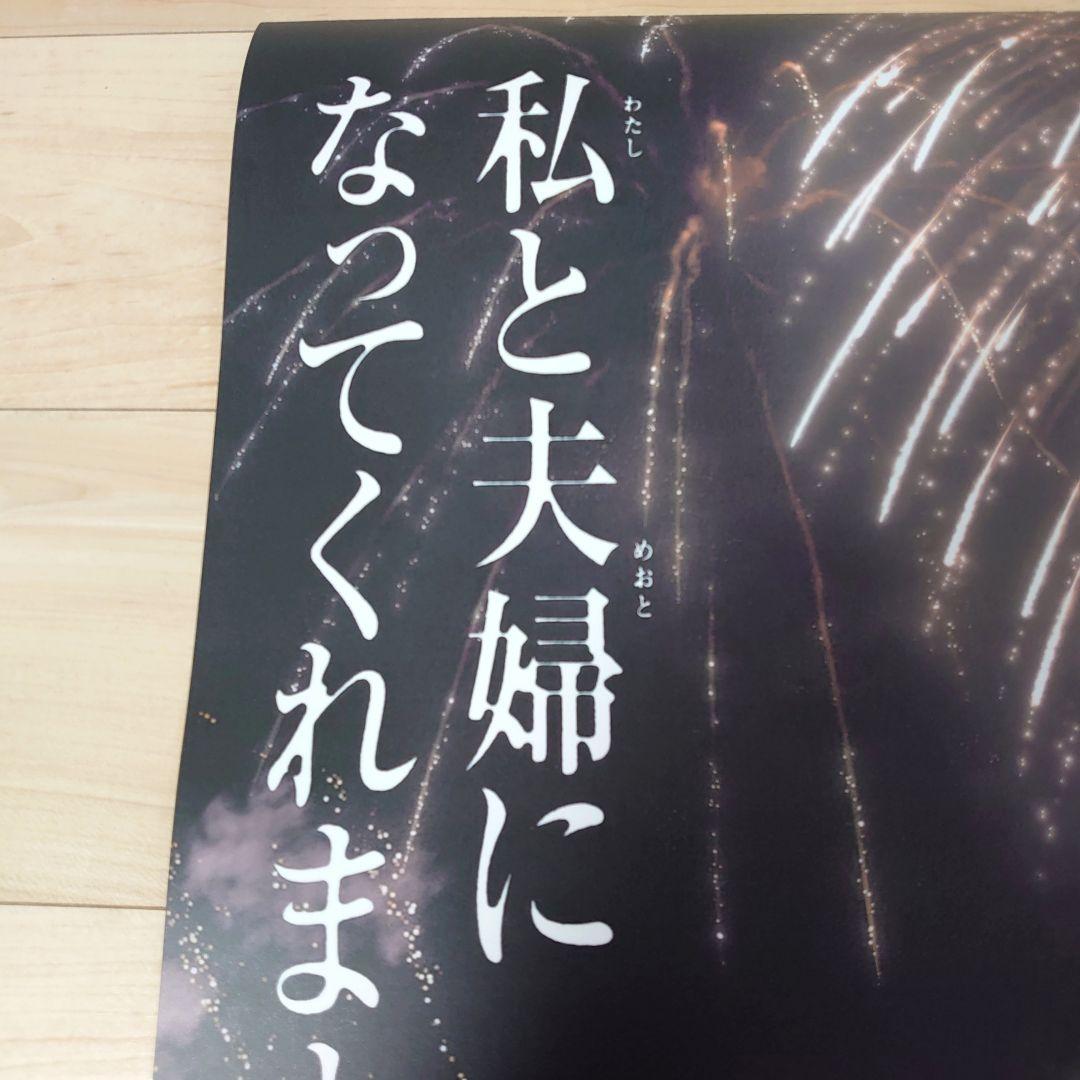 私と夫婦に
わたし
めおと
なってくれま